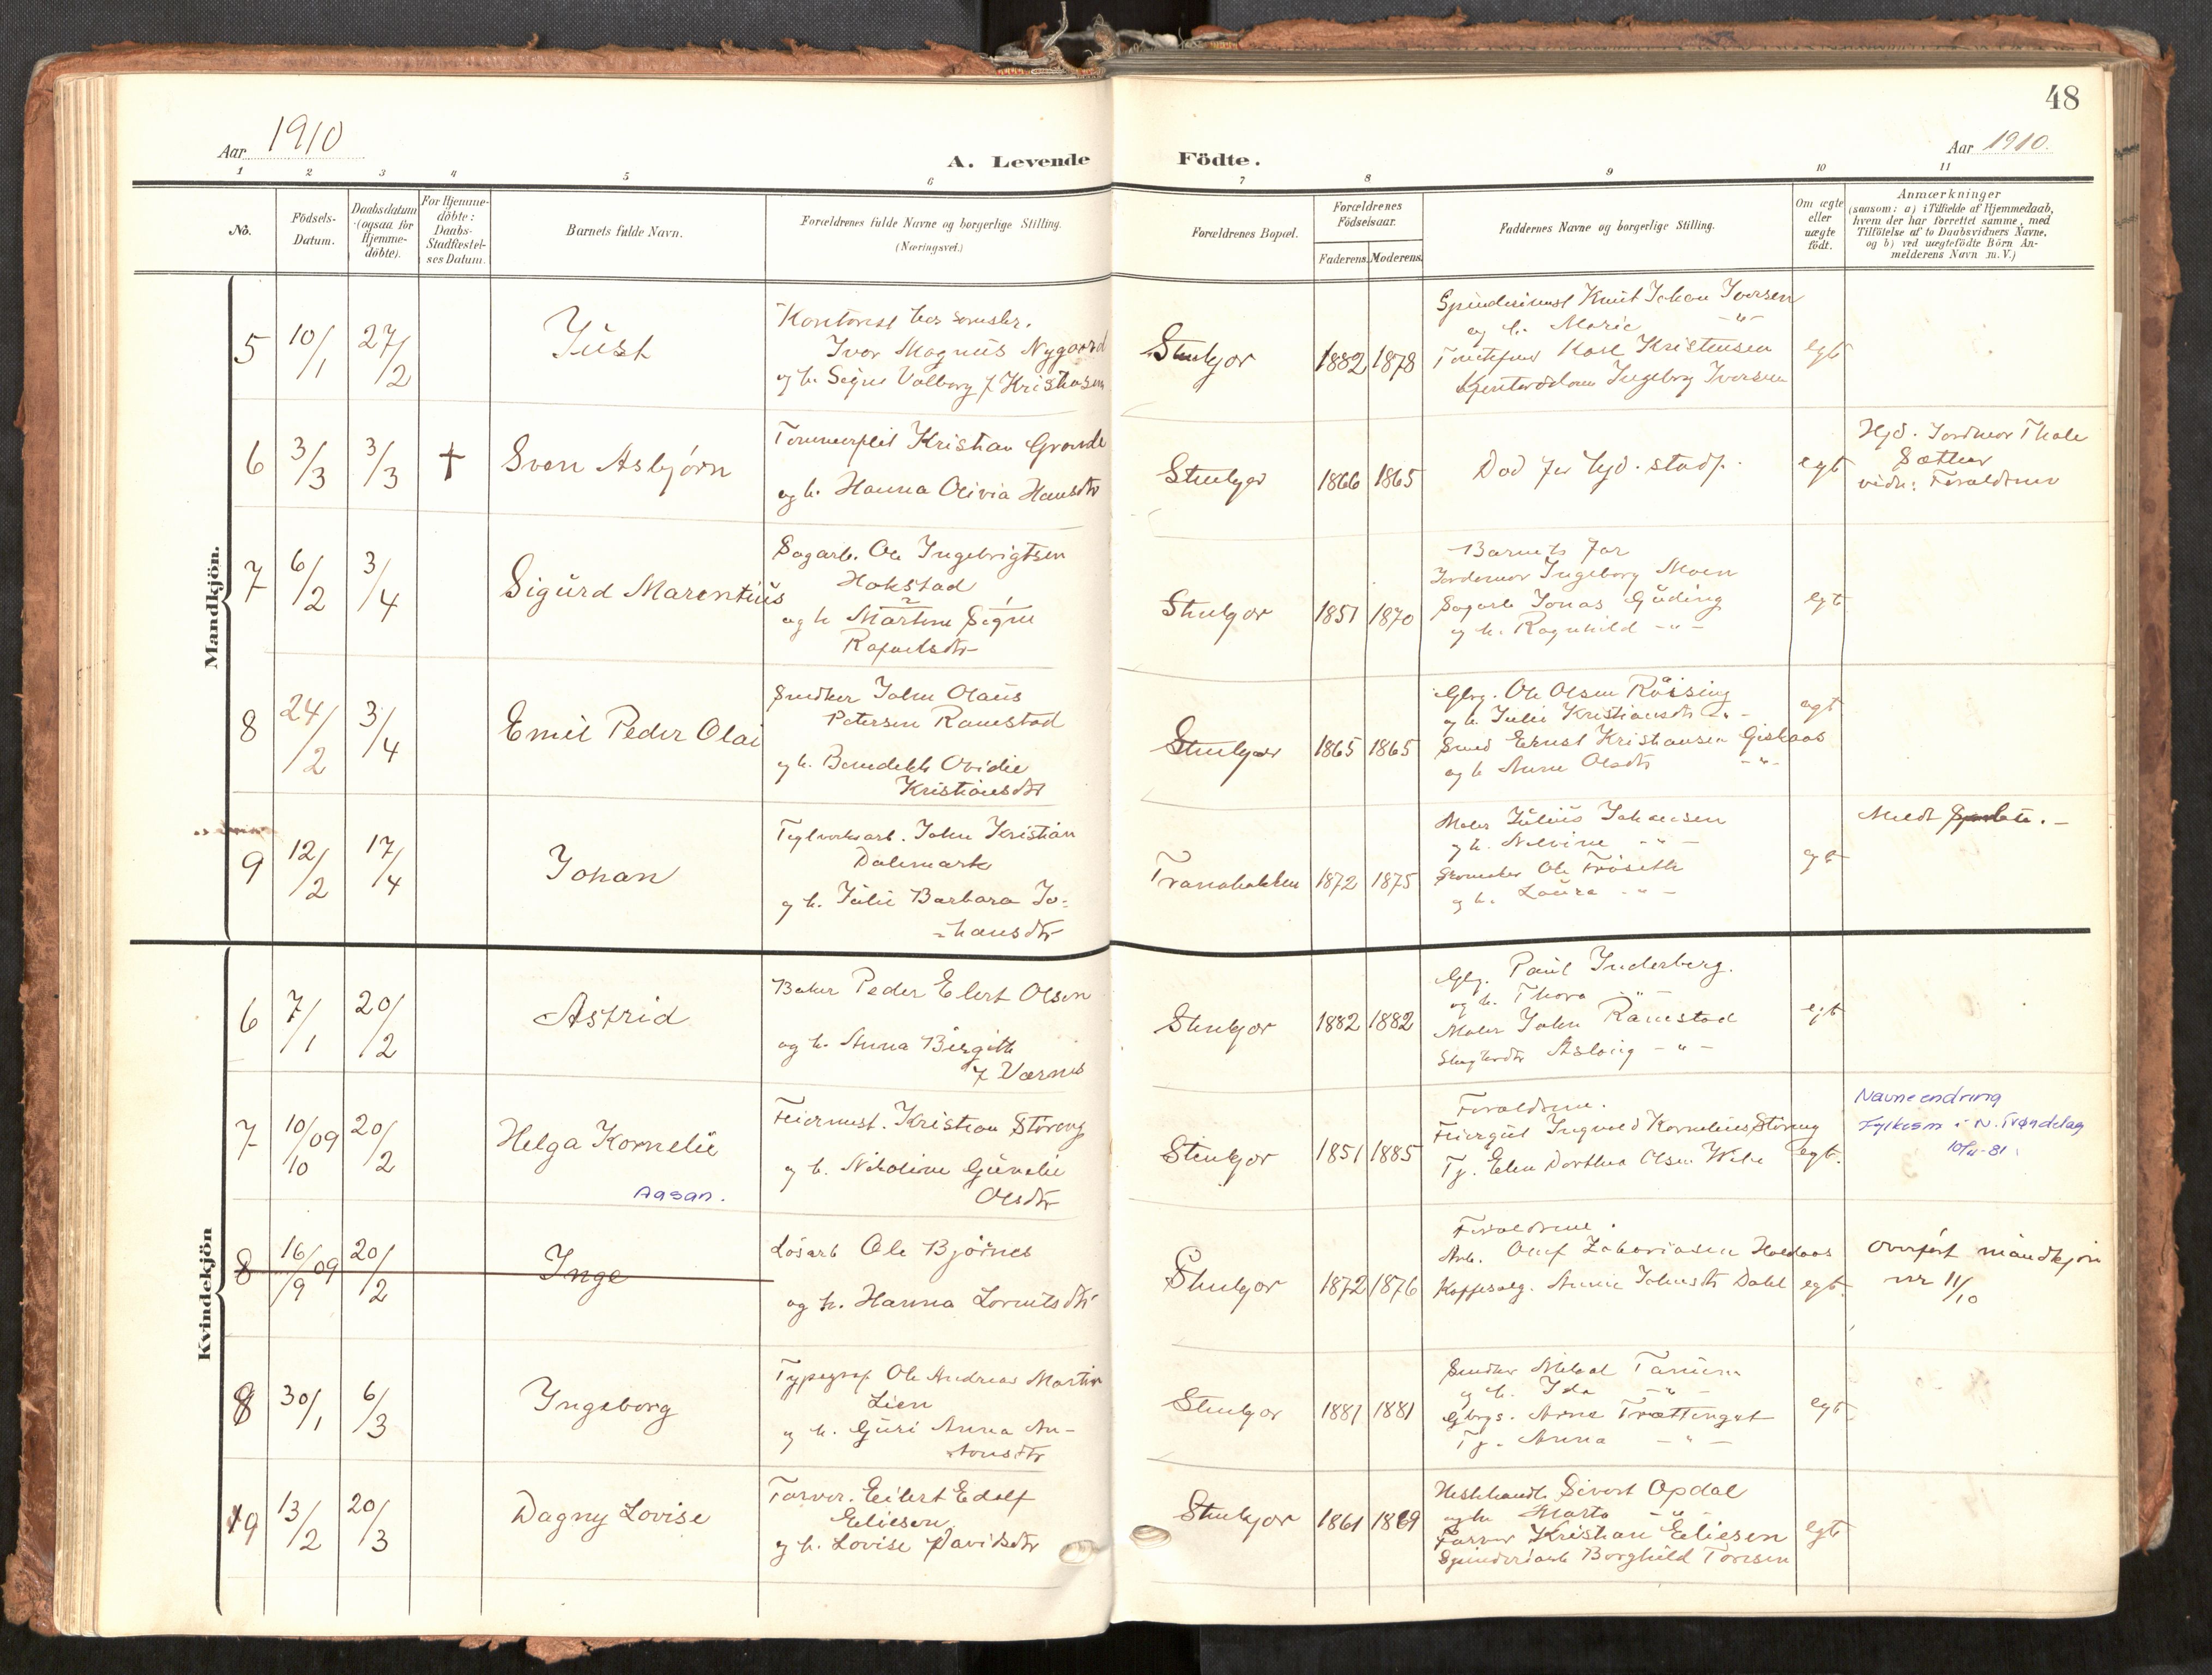 48
Aar 1910
A. Levende Födte.
Aar 1910.
1 2 3 4 5 6 7 8 9 10 11
No.
Födsels-
Datum.
Daabsdatum
(ogsaa for
Hjemme-
döbte).
For Hjemme-
döbte:
Daabs-
Stadfæstel-
ses Datum.
Barnets fulde Navn.
Forældrenes fulde Navne og borgerlige Stilling.
(Næringsvei.)
Forældrenes Bopæl.
Forældrenes
Födselsaar.
Faderens. Moderens.
Faddernes Navne og borgerlige Stilling.
Om ægte
eller
uægte
födt.
Anmærkninger
(saasom: a) i Tilfælde af Hjemmedaab,
hvem der har forrettet samme, med
Tilföielse af to Daabsvidners Navne,
og b) ved uægtefödte Börn An-
melderens Navn m.V.)
Mandkjön.
5 10/1 27/2
Just
Kontorist
Ivar Magnus Nygaard
og h. Signe Valborg f Kristiansen
Stenkjær 1882 1878
Knut Johan Iversen
og h. Marie -"-
Karl Kristensen
Ingeborg Iversen
egt
6 3/3 3/3 †
Sven Asbjørn
Kristian Grande
og h. Hanna Olivia Hansdtr
Stenkjær 1866 1865
Død før hjd. stadf.
egt
Hjd. Jordmor Thale
Sæther
vidn: Forældrene
7 6/2 3/4
Sigurd Marentius
Sagarb. Ole Ingebrigtsen
Hokstad
og h Martine Signe
2 1
Rafaelsdtr
Stenkjær 1851 1870
Barnets far
Jordemor Ingeborg Moen
Sagarb Jonas Guding
og h. Ragnhild -"-
egt
8 24/2 3/4
Emil Peder Olai
Snedker John Olaus
Petersen Ramstad
og h. Benedikte Ovidie
Kristiansdtr
Stenkjær 1865 1865
Gbrg. Ole Olsen Røising
og h. Julie Kristiansdtr -"-
Smed Ernst Kristiansen Giskaas
og h Anne Olsdtr -"-
egt
9 12/2 17/4
Johan
Teglverksarb. John Kristian
Dalemark
og h. Julie Barbara Jo=
=hansdtr
Tranabakken 1872 1875
Maler Julius Johansen
og h. Nelvine -"-
Skomaker Ole Frøseth
og h. Laura -"-
egt
Meldt
Kvindekjön
6 7/1 20/2
Astrid
Baker Peder Elert Olsen
og h. Anna Birgitte
f Værnes
Stenkjær 1882 1882
Gbrg. Paul Inderberg.
og h. Thora -"-
Maler John Ramstad
Aslaug -"-
egt
7 10/10 09 20/2
Helga Kornelie
Aasan.
Feiermest. Kristian Støreng
og h. Nikoline Gunelie
Olsdtr
Stenkjær 1851 1885
Forældrene.
Ingvald Kornelius Støreng
Tj. Elen Dorthea Olsen
egt.
Navneendring
Fylkesm i N. Trøndelag
8 16/9 09 20/2
Inge
Løsarb Ole Bjørnes
og h. Hanna Lorntsdtr
Stenkjær 1872 1876
Forældrene.
Arb. Zakariasen
Kaffesalg. Johnsdtr Dahl
egt.
Overført mandkjøn
nr 11/10
8 30/1 6/3
Ingeborg
Typograf Ole Andreas Martin
Lien
og h. Guri Anna An-
tonsdtr
Stenkjær 1881 1881
Snedker
og h. Ida -"-
Gbrgs. Arne
Tj. Anna -"-
egt
9 13/2 20/3
Dagny Lovise
Farver. Eilert Edolf
Eliesen
og h. Lovise Davidsdtr
Stenkjær 1861 1869
Hestehandl. Sivert Opdal
og h. Marta -"-
Farver Kristian Eliesen
Borghild Toresen
egt